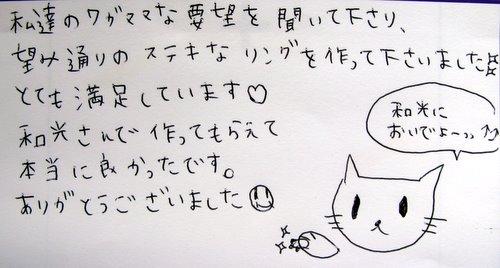 私達のワガママな要望を聞いて下さり、
望み通りのステキなリングを作って下さいました
とても満足しています♡
和光さんで作ってもらえて
本当に良かったです。
ありがとうございました☺
和光に
おいでよーっ